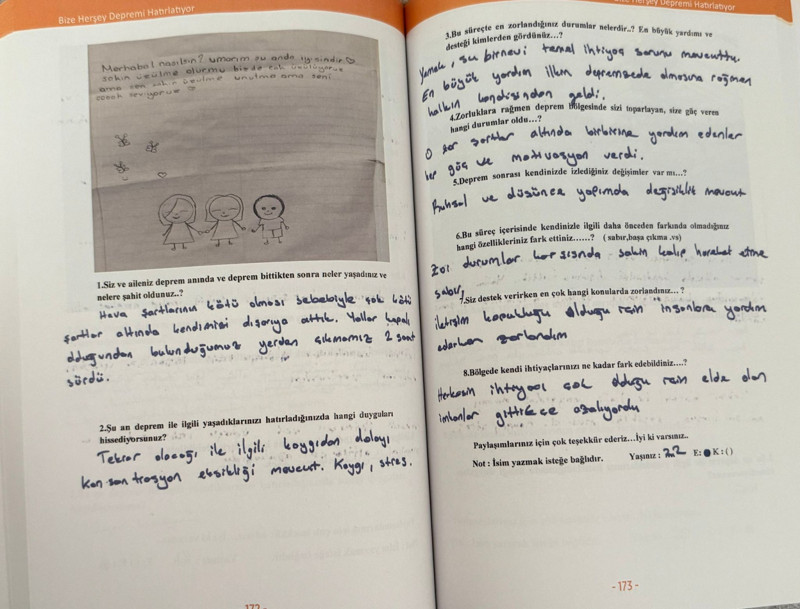 Bize Herşey Depremi Hatırlatıyor
Merhaba! nasılsın? umarım şu anda iyisindir.
sakın üzülme olurmu bizde çok üzülüyoruz
ama sen sakın üzülme unutma ama seni
çoook seviyoruz
1.Siz ve aileniz deprem anında ve deprem bittikten sonra neler yaşadınız ve
nelere şahit oldunuz..?
Hava şartlarının kötü olması sebebiyle çok kötü
şartlar altında kendimizi dışarıya attık. Yollar kapalı
olduğundan bulunduğumuz yerden çıkmamız 2 saat
sürdü.
2.Şu an deprem ile ilgili yaşadıklarınızı hatırladığınızda hangi duyguları
hissediyorsunuz?
Tekrar olacağı ile ilgili kaygıdan dolayı
konsantrasyon eksikliği mevcut. Kaygı, stres.
172 -
Bize Herşey Depremi Hatırlatıyor
3.Bu süreçte en zorlandığınız durumlar nelerdir..? En büyük yardımı ve
desteği kimlerden gördünüz...?
Yemek, su birnevi temel ihtiyaç sorunu mevcuttu.
En büyük yardım illim depremzede olmasına rağmen
halkın kendisinden geldi.
4.Zorluklara rağmen deprem bölgesinde sizi toparlayan, size güç veren
hangi durumlar oldu...?
O zor şartlar altında birbirine yardım edenler
hep güç ve motivasyon verdi.
5.Deprem sonrası kendinizde izlediğiniz değişimler var mı...?
Ruhsal ve düşünce yapımda değişiklik mevcut
6.Bu süreç içerisinde kendinizle ilgili daha önceden farkında olmadığınız
hangi özellikleriniz fark ettiniz......? ( sabır,başa çıkma .vs)
Zor durumlar karşısında sakin kalıp hareket etme
sabır,
7.Siz destek verirken en çok hangi konularda zorlandınız... ?
iletişim kopukluğu olduğu için insanlara yardım
ederken zorlandım
8.Bölgede kendi ihtiyaçlarınızı ne kadar fark edebildiniz....?
Herkesin ihtiyacı çok olduğu için elde olan
imkanlar gittikçe azalıyordu
Paylaşımlarınız için çok teşekkür ederiz…İyi ki varsınız..
Not : İsim yazmak isteğe bağlıdır. Yaşınız : 22 E: K : ( )
- 173 -